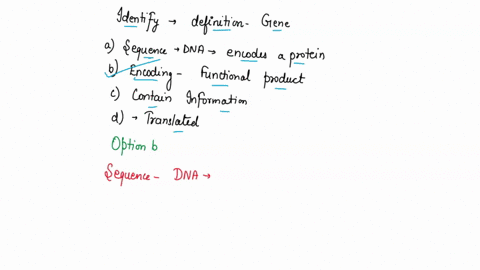 Identify → definition- Gene
a) Sequence → DNA → encodes a protein
b) Encoding - Functional product
c) Contain Information
d) → Translated
Option b
Sequence - DNA →